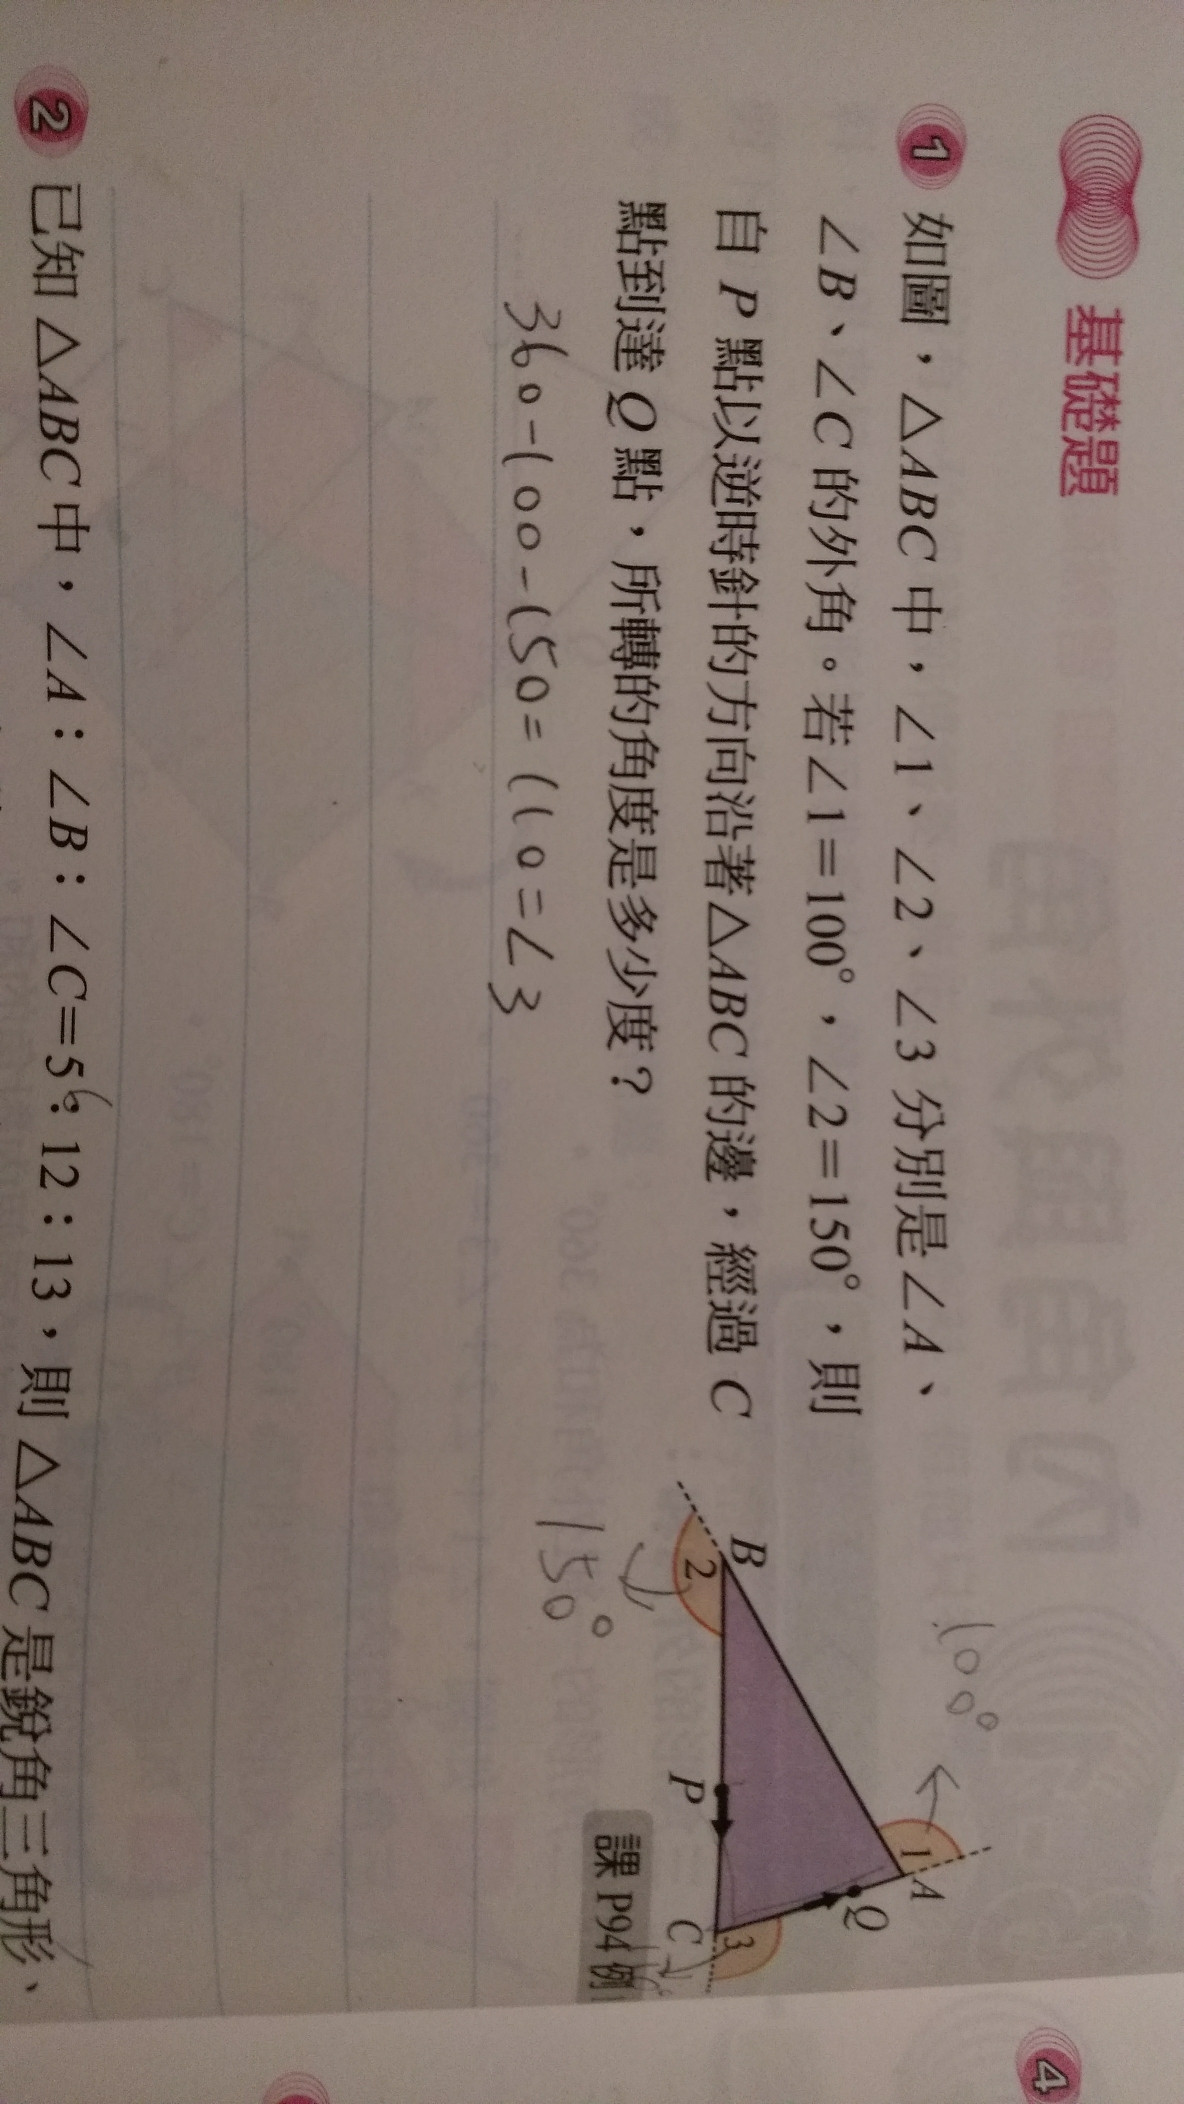 基礎題
1 如圖，△ABC 中，∠1、∠2、∠3 分別是∠A、
∠B、∠C 的外角。若∠1＝100°，∠2＝150°，則
自 P 點以逆時針的方向沿著△ABC 的邊，經過 C
點到達 Q 點，所轉的角度是多少度？
100°
A
1
Q
B
2
P
C
3
150°
課 P94 例
360-100-150=110=∠3
2 已知 △ABC 中，∠A：∠B：∠C＝5：12：13，則 △ABC 是銳角三角形、
4